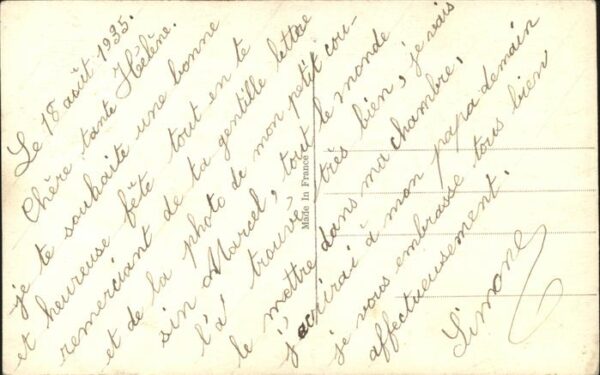 Le 18 août 1935.
Chère tante Hélène.
je te souhaite une bonne
et heureuse fête tout en te
remerciant de ta gentille lettre
et de la photo de mon petit cou-
sin Marcel, tout le monde
l'a trouvé très bien, je vais
le mettre dans ma chambre,
j'écrirai à mon papa demain
je vous embrasse tous bien
affectueusement.
Simone
Made In France